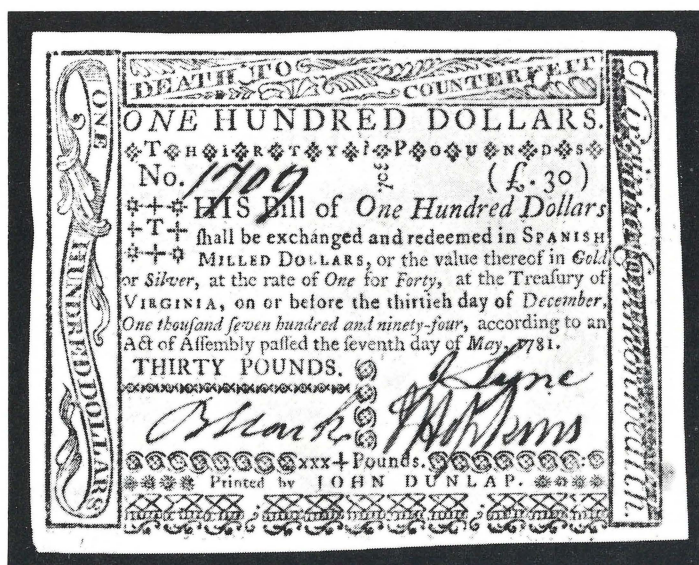 DEATH TO COUNTERFEIT
ONE HUNDRED DOLLARS.
THIRTY POUNDS
No. 1709 (£.30)
THIS Bill of One Hundred Dollars
ſhall be exchanged and redeemed in SPANISH
MILLED DOLLARS, or the value thereof in Gold
or Silver, at the rate of One for Forty, at the Treaſury of
VIRGINIA, on or before the thirtieh day of December,
One thouſand ſeven hundred and ninety-four, according to an
Act of Aſſembly paſſed the ſeventh day of May, 1781.
THIRTY POUNDS.
J Lyne
B Stark
J Hopkins
xxx+Pounds.
Printed by JOHN DUNLAP.
ONE HUNDRED DOLLARS
Virginia Commonwealth.